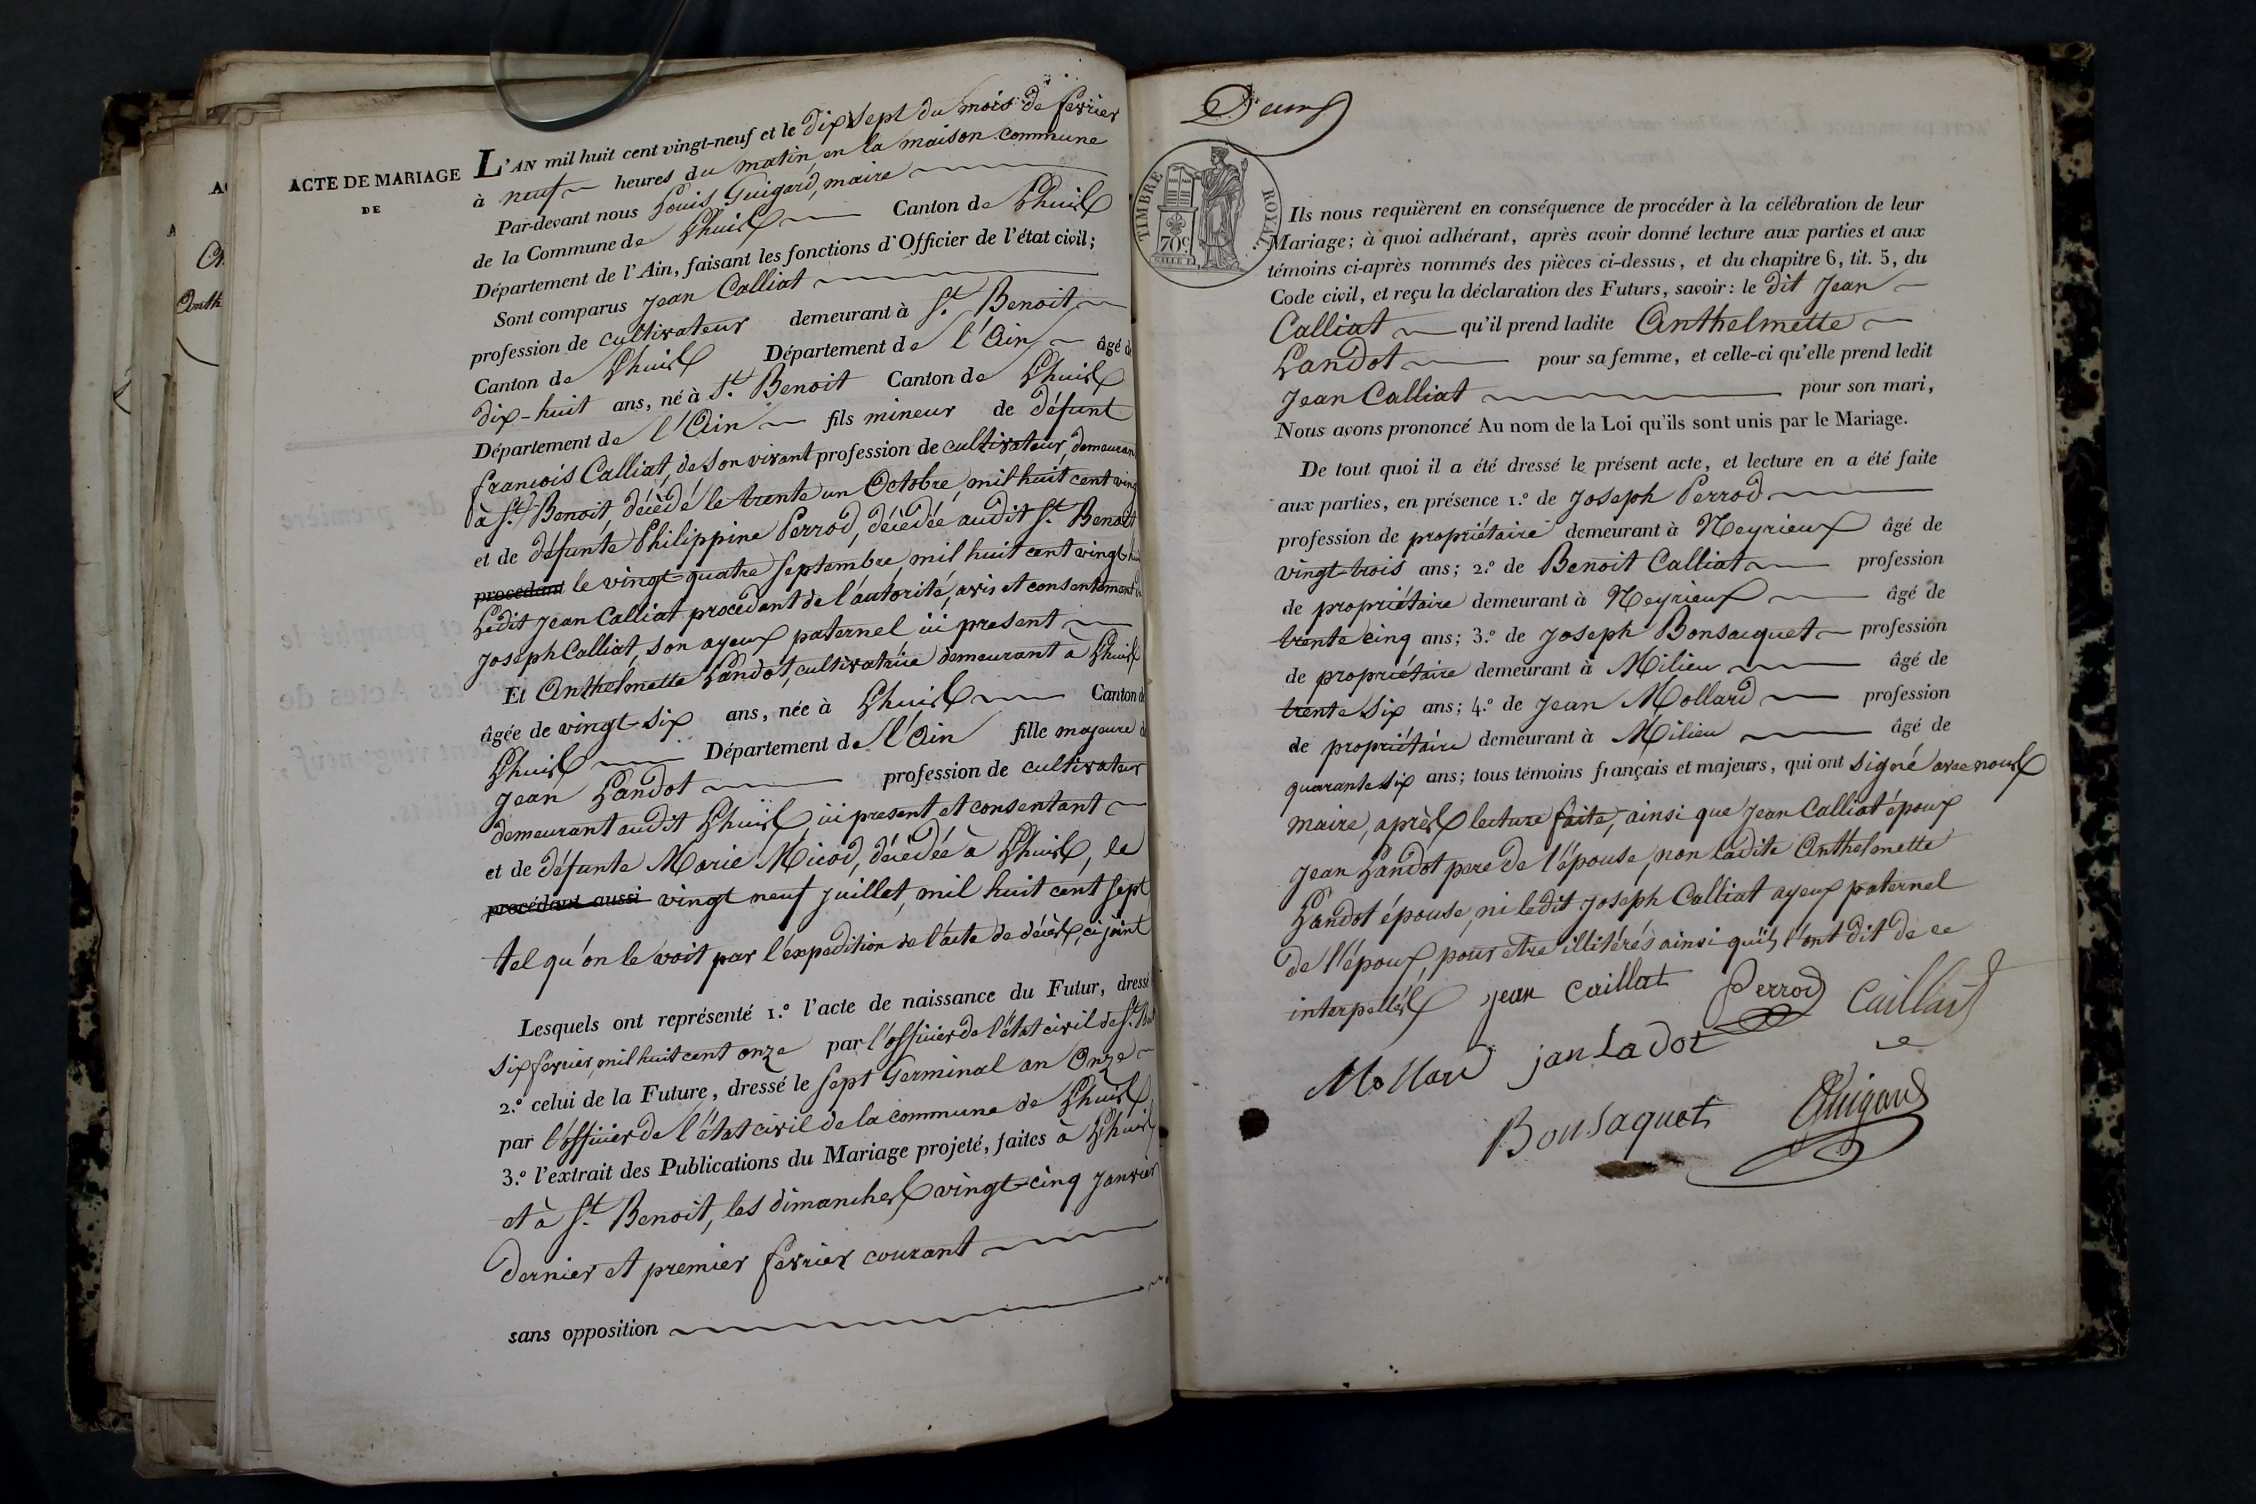 ACTE DE MARIAGE
DE
L'AN mil huit cent vingt-neuf et le dix sept du mois de fevrier
à neuf heures du matin, en la maison commune
Par-devant nous Louis Guigard, maire
de la Commune de Lhuis Canton de Lhuis
Département de l'Ain, faisant les fonctions d'Officier de l'état civil;
Sont comparus Jean Calliat
profession de cultivateur demeurant à St. Benoit
Canton de Lhuis Département de l'Ain âgé de
dix-huit ans, né à St. Benoit Canton de Lhuis
Département de l'Ain fils mineur de défunt
francois Calliat, de son vivant profession de cultivateur, demeurant
à St. Benoit, décédé le trente un Octobre, mil huit cent vingt
et de défunte Philippine Perrod, décédée audit St. Benoit
procédant le vingt-quatre septembre, mil huit cent vingt huit
Ledit Jean Calliat procédant de l'autorité, avis et consentement de
Joseph Calliat, son ayeux paternel ici present
Et Anthelmette Landot, cultivatrice demeurant à Lhuis
âgée de vingt-six ans, née à Lhuis Canton de
Lhuis Département de l'Ain fille majeure de
Jean Landot profession de cultivateur
demeurant audit Lhuis, ici present et consentant
et de défunte Marie Micod, décédée à Lhuis, le
procédant aussi vingt neuf juillet, mil huit cent sept
tel qu'on le voit par l'expedition de l'acte de décès, ci joint
Lesquels ont représenté 1.º l'acte de naissance du Futur, dressé
six fevrier, mil huit cent onze par l'officier de l'état civil de St. Bt
2.º celui de la Future, dressé le sept Germinal an Onze
par l'officier de l'état civil de la commune de Lhuis
3.º l'extrait des Publications du Mariage projeté, faites à Lhuis
et à St. Benoit, les dimanches vingt-cinq Janvier
dernier et premier fevrier courant
sans opposition
Deux
TIMBRE ROYAL.
70c
Ils nous requièrent en conséquence de procéder à la célébration de leur
Mariage; à quoi adhérant, après avoir donné lecture aux parties et aux
témoins ci-après nommés des pièces ci-dessus, et du chapitre 6, tit. 5, du
Code civil, et reçu la déclaration des Futurs, savoir: le dit Jean
Calliat qu'il prend ladite Anthelmette
Landot pour sa femme, et celle-ci qu'elle prend ledit
Jean Calliat pour son mari,
Nous avons prononcé Au nom de la Loi qu'ils sont unis par le Mariage.
De tout quoi il a été dressé le présent acte, et lecture en a été faite
aux parties, en présence 1.º de Joseph Perrod
profession de propriétaire demeurant à Neyrieux âgé de
vingt-trois ans; 2.º de Benoit Calliat profession
de propriétaire demeurant à Neyrieux âgé de
trente cinq ans; 3.º de Joseph Bonsacquet profession
de propriétaire demeurant à Milieu âgé de
trente six ans; 4.º de Jean Mollard profession
de propriétaire demeurant à Milieu âgé de
quarante six ans; tous témoins français et majeurs, qui ont signé avec nous
maire, après lecture faite, ainsi que Jean Calliat époux
Jean Landot pere de l'épouse, non ladite Anthelmette
Landot épouse, ni ledit Joseph Calliat ayeux paternel
de l'époux, pour etre illitérés ainsi qu'ils l'ont dit de ce
interpellés jean caillat Perrod Caillat
Mollard jan Ladot
Bonsaquet Guigard